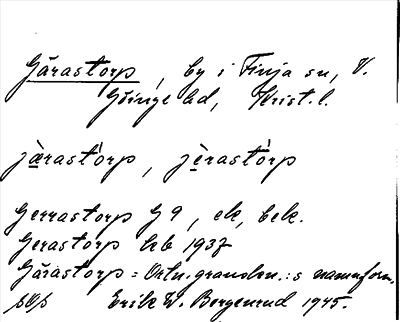 Gärastorp, by i Finja sn, V.
Göinge hd, Krist. l.
järastórp, jèrastórp
Gerrastorp G9, ek, bek.
Gerastorp hb 1937
Gärastorp = Ortn.granskn.:s namnform.
Erik W. Bergenrud 1945.